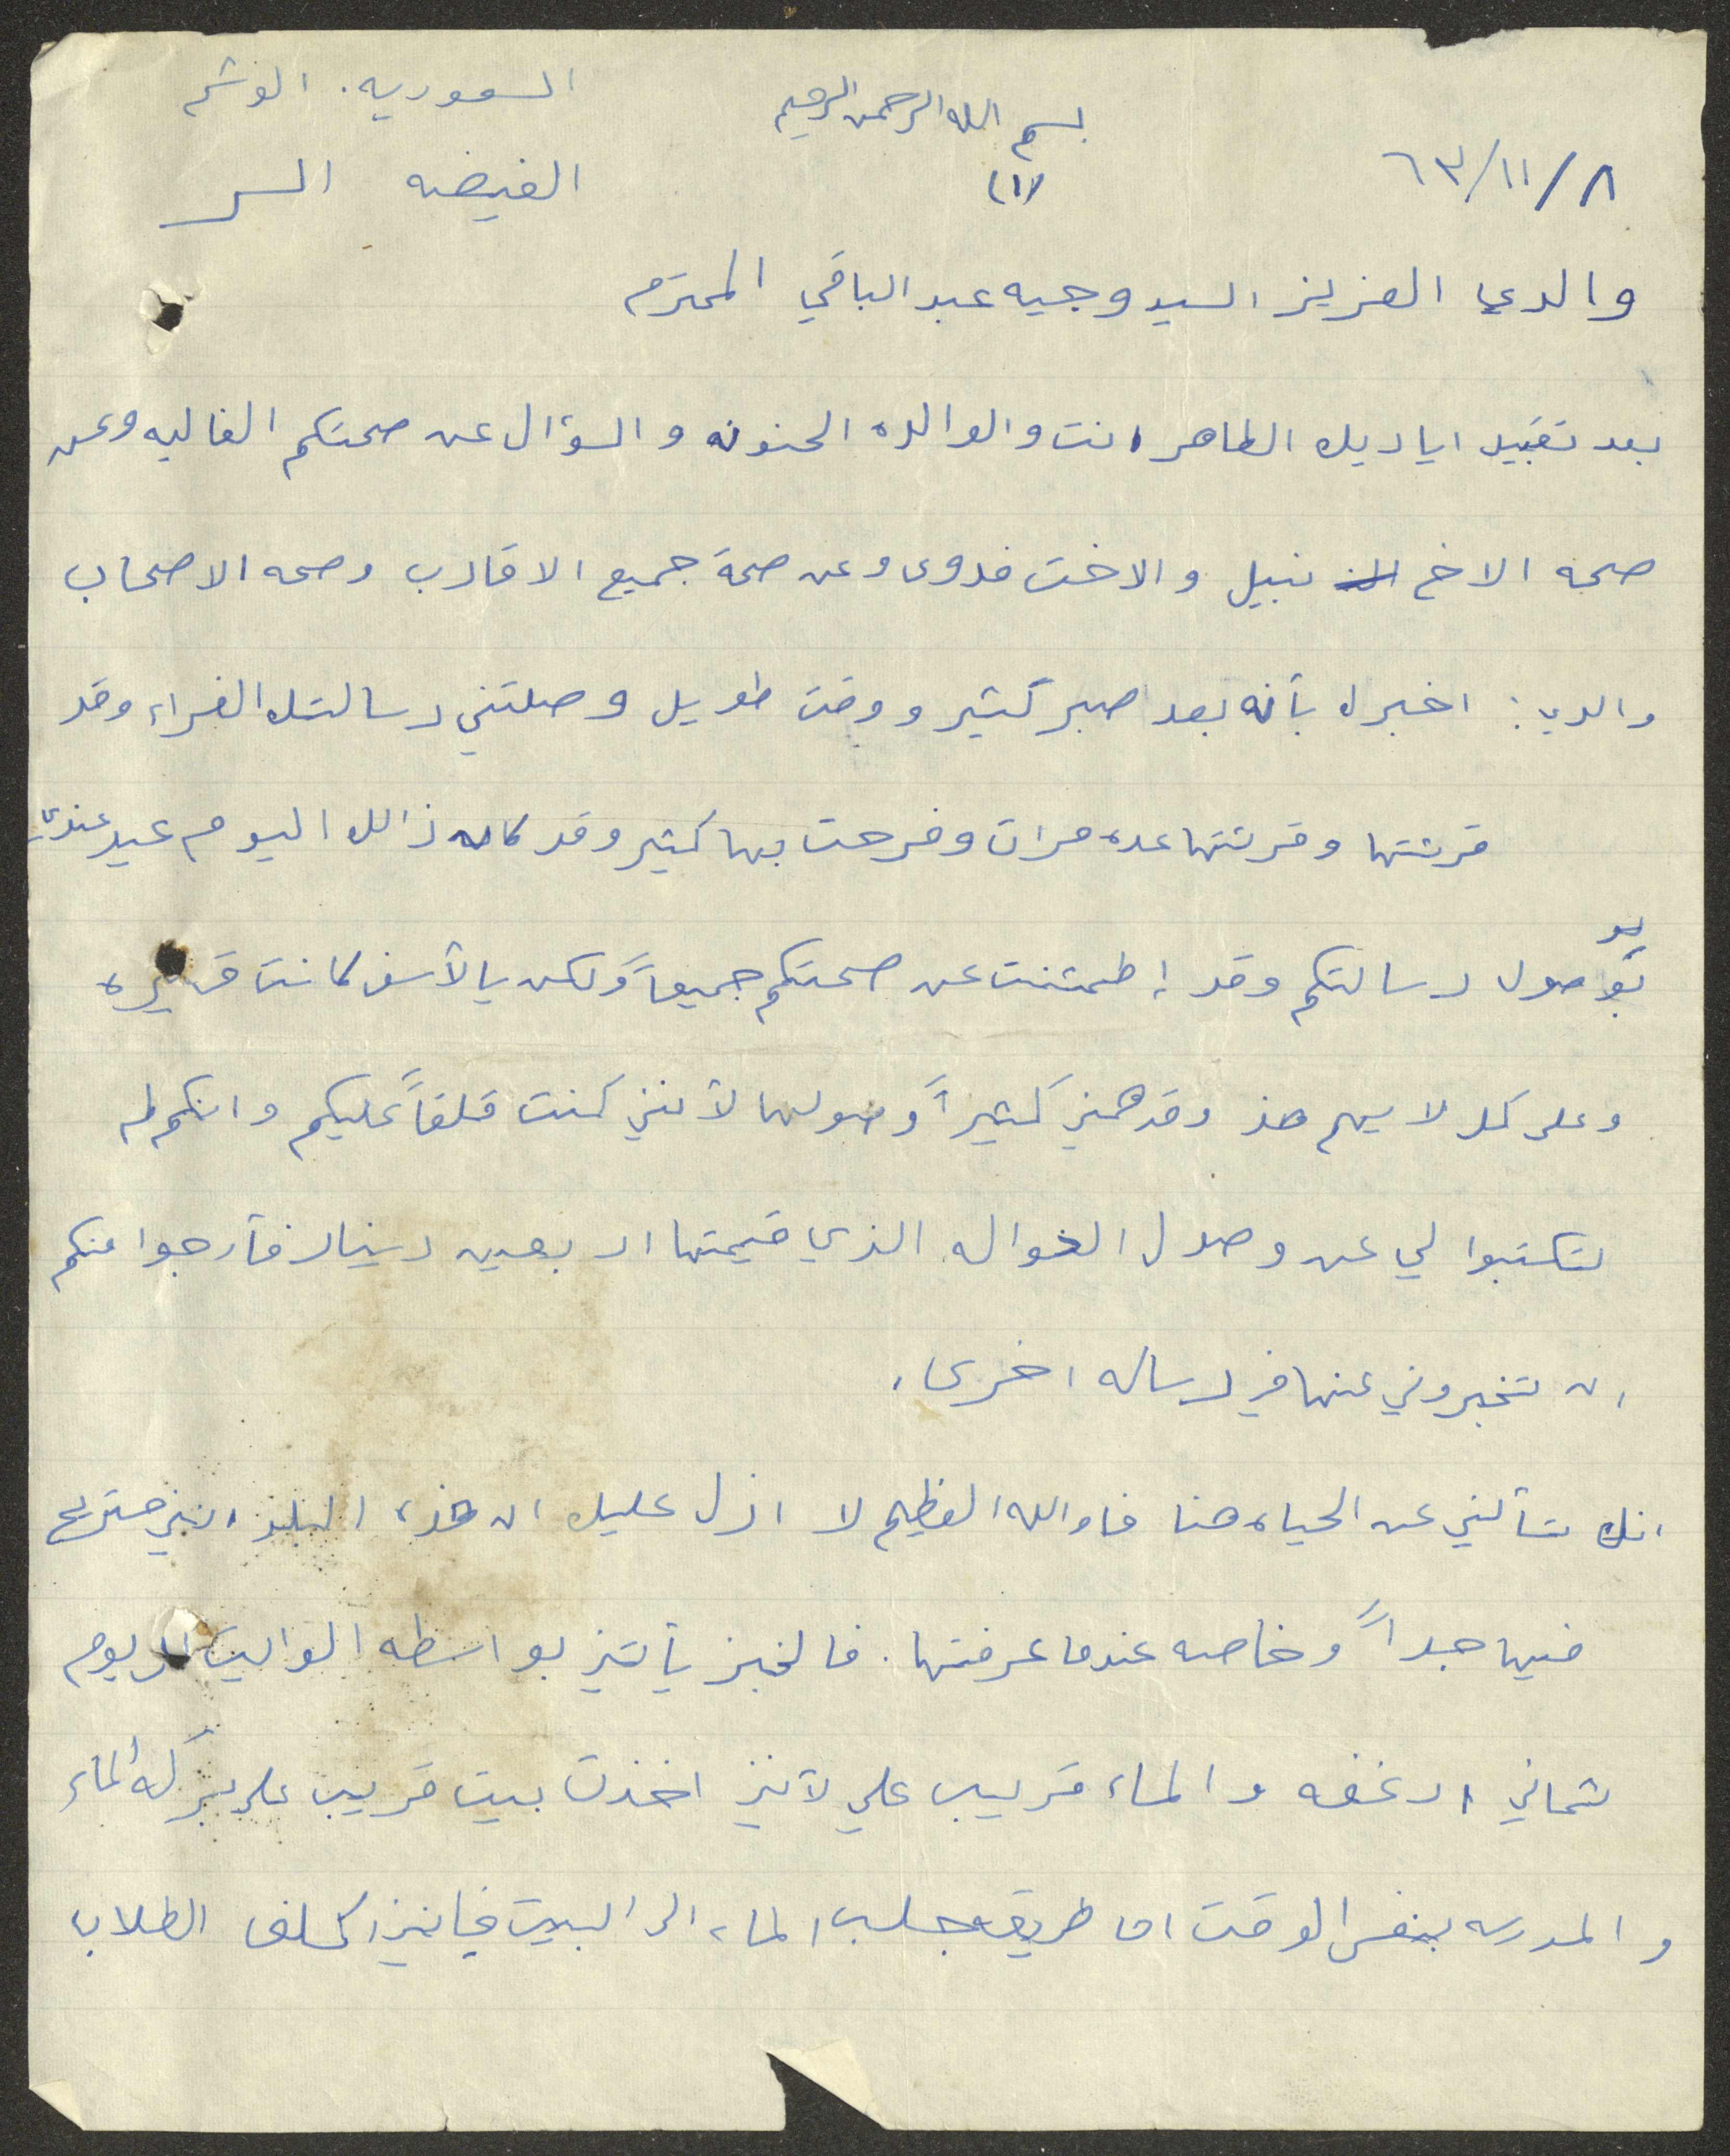 السعوديه. الوشم
بسم الله الرحمن الرحيم
٨/ ١١/ ٦٣
(١)
الفيضه السر
والدي العزيز السيد وجيه عبد الباقي المحترم
بعد تقبيل اياديك الطاهر انت والوالده الحنونه والسؤال عن صحتكم الغاليه وعن
صحه الاخ نبيل والاخت فدوى وعن صحة جميع الاقارب وصحه الاصحاب
والدي: اخبرك بأنه بعد صبر كثير ووقت طويل وصلتني رسالتك الغراء وقد
قرئتها وقرئتها عده مرات وفرحت بها كثير وقد كان ذالك اليوم عيد عندي
بوصول رسالتكم وقد إطمئنت عن صحتكم جميعاً ولكن يالأسف كانت قصيره
وعلى كل لا يهم هذ وقد همني كثيراً وصولها لأنني كنت قلقاً عليكم وانكم لم
تكتبوا لي عن وصول الحواله الذي قيمتها اربعين دينار فأرجوا منكم
ان تخبروني عنها في رساله اخرى.
انك تسألني عن الحياه هنا فاوالله العظيم لا ازل عليك ان هذه البلد انني مستريح
فيها جداً وخاصه عندما عرفتها. فالخبز يأتيني بواسطه الوانيت كل يوم
ثماني ارغفه والماء قريب علي لأنني اخذت بيت قريب على بركه الماء
والمدرسه بنفس الوقت اما طريقة جلب الماء الى البيت فإنني اكلف الطلاب